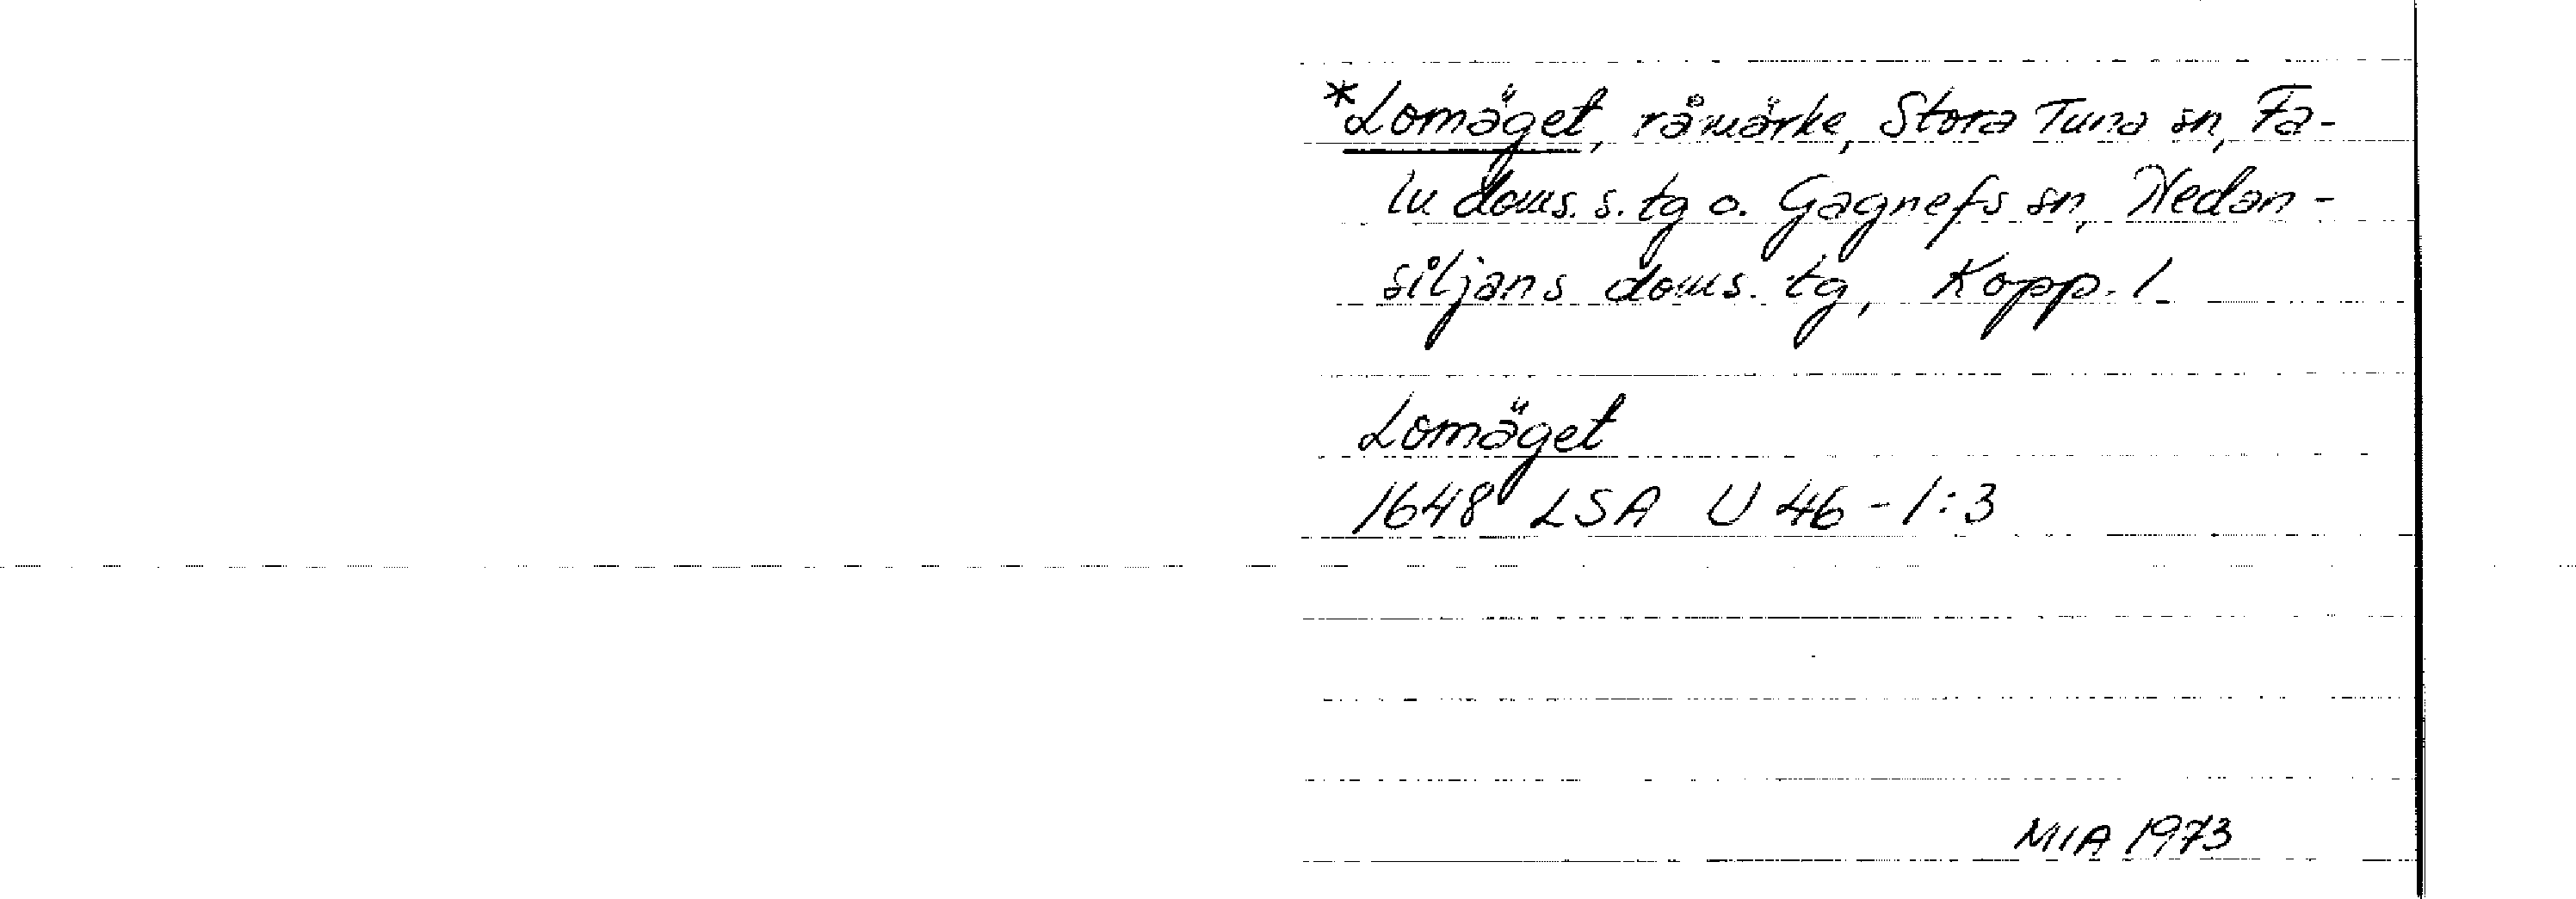 *Lomäget, råmärke, Stora Tuna sn, Fa-
lu doms. s. tg o. Gagnefs sn, Nedan-
siljans doms. tg, Kopp. l.
Lomäget
1648 LSA U 46 - 1:3
MIA 1973